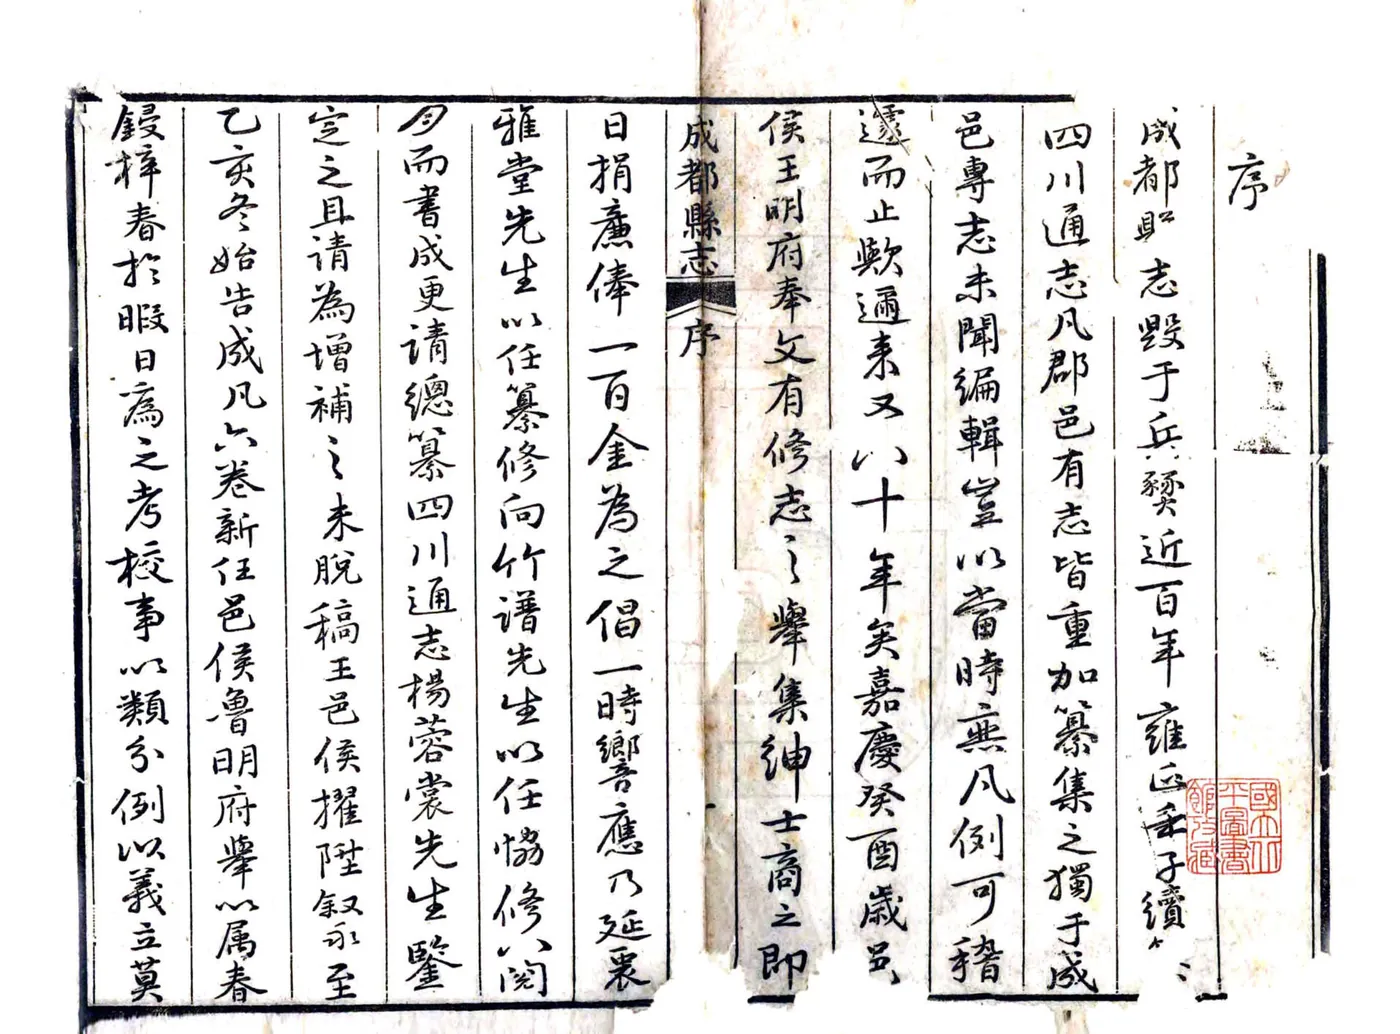 序
成都縣志毀于兵燹近百年雍正壬子續
四川通志凡郡邑有志皆重加纂集之獨于成
邑專志未聞編輯豈以當時無凡例可稽
遽而止歟邇来又八十年矣嘉慶癸酉歲邑
侯王明府奉文有修志之舉集紳士商之即
成都縣志
序
日捐廉俸一百金為之倡一時嚮應乃延裏
雅堂先生以任纂修向竹譜先生以任協修八閱
月而書成更請總纂四川通志楊蓉裳先生鑒
定之且請為增補之未脫稿王邑侯擢陞叙永至
乙亥冬始告成凡六卷新任邑侯魯明府舉以属春
鋟梓春於暇日為之考校事以類分例以義立莫
國立北平圖書館收藏